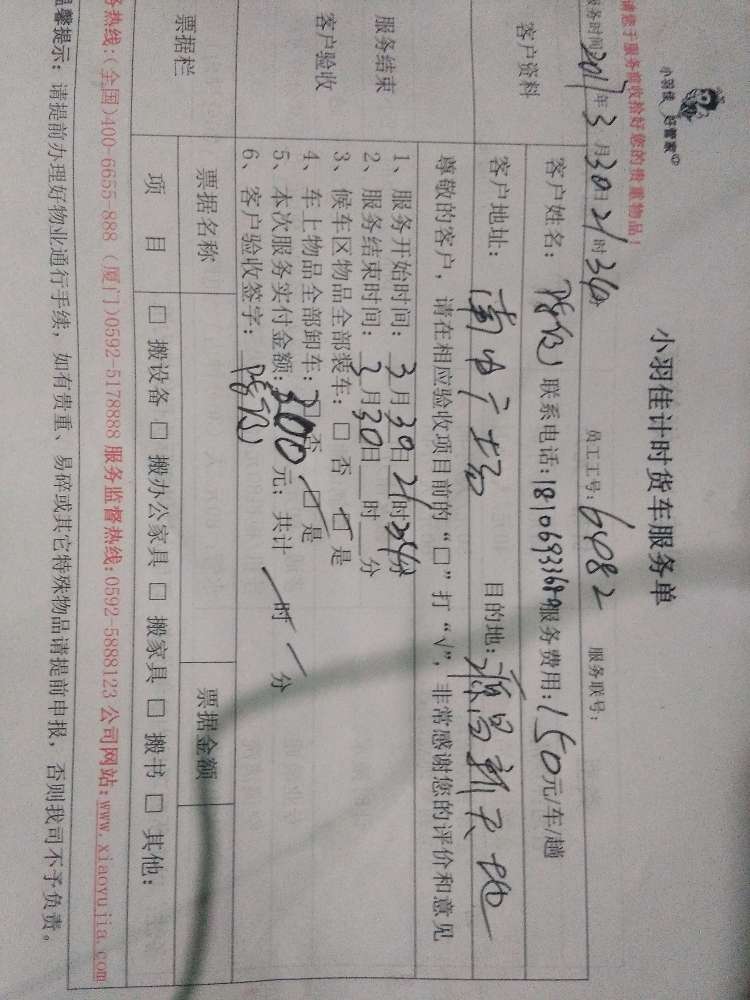 小羽佳 好管家
请您于服务前收拾好您的贵重物品!
小羽佳计时货车服务单
服务时间: 年3月30日21时 分 员工工号:6482 服务联号:
客户资料
客户姓名: 联系电话: 服务费用:150元/车/趟
客户地址: 南中广场 目的地: 源昌新天地
服务结束
客户验收
尊敬的客户,请在相应验收项目前的“口”打“√”,非常感谢您的评价和意见
1、服务开始时间:3月30日21时 分
2、服务结束时间:3月30日 时 分
3、候车区物品全部装车:□ 否 □ 是
4、车上物品全部卸车:□ 否 □ 是
5、本次服务实付金额:300元;共计 时 分
6、客户验收签字:
票据栏
票据名称 票据金额
项 目 □ 搬设备 □ 搬办公家具 □ 搬家具 □ 搬书 □ 其他:
务热线:(全国)400-6655-888 (厦门)0592-5178888 服务监督热线:0592-5888123 公司网站:www.xiaoyujia.com
温馨提示: 请提前办理好物业通行手续,如有贵重、易碎或其它特殊物品请提前申报,否则我司不予负责。